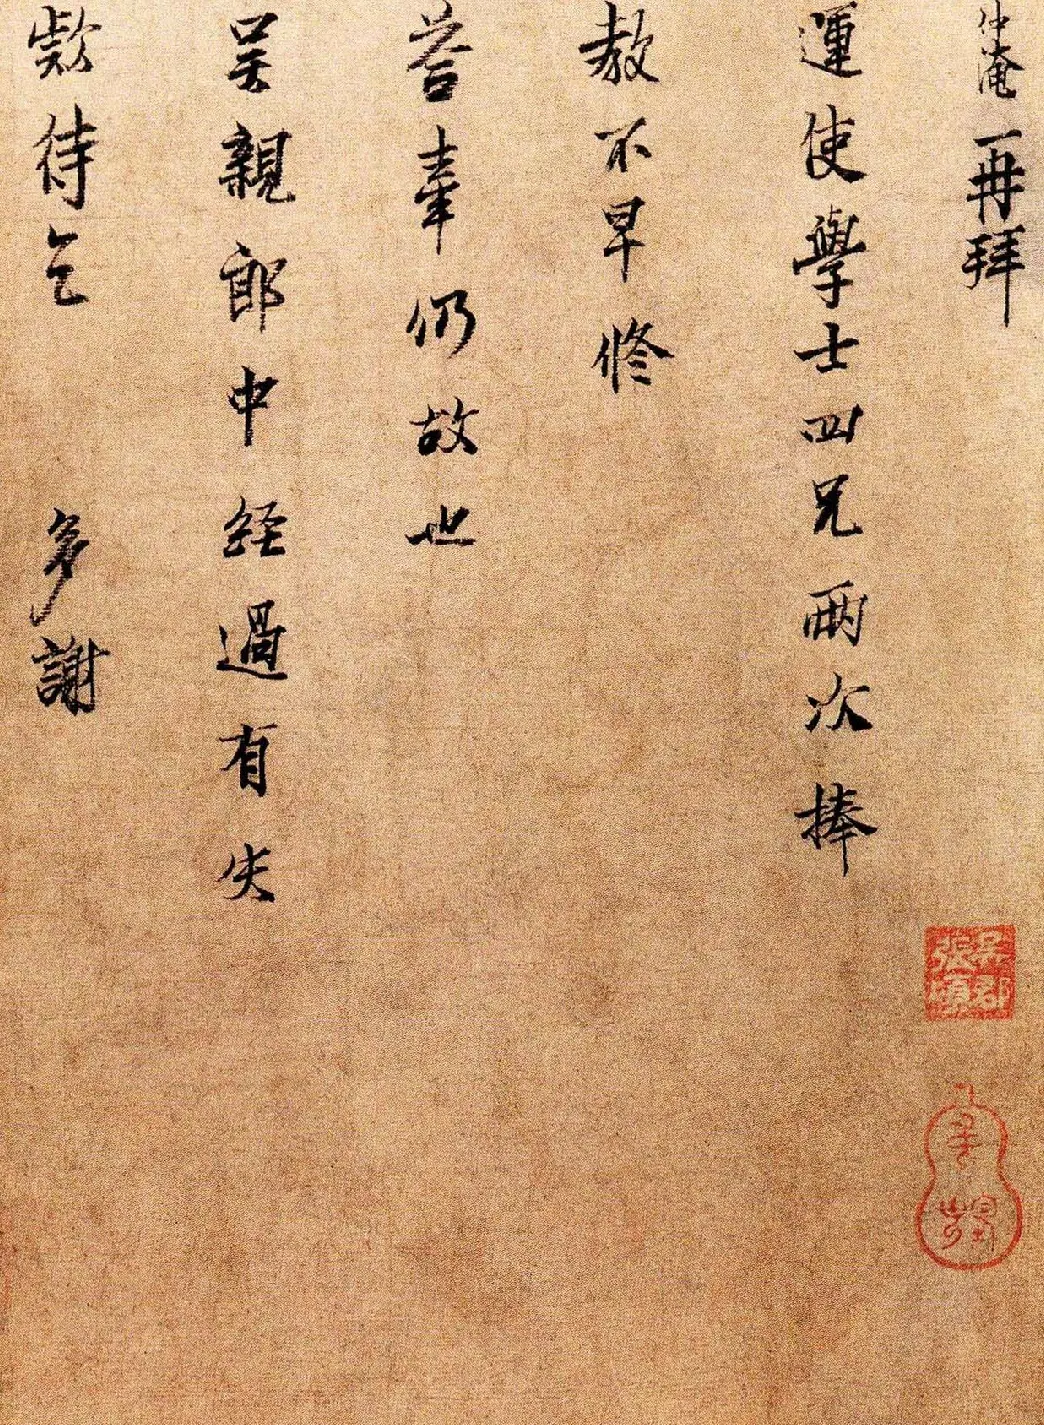 仲淹再拜
運使學士四兄兩次捧
教不早修
荅牽仍故也
吴親郎中経過有失
款待乞多謝
吳郡
張